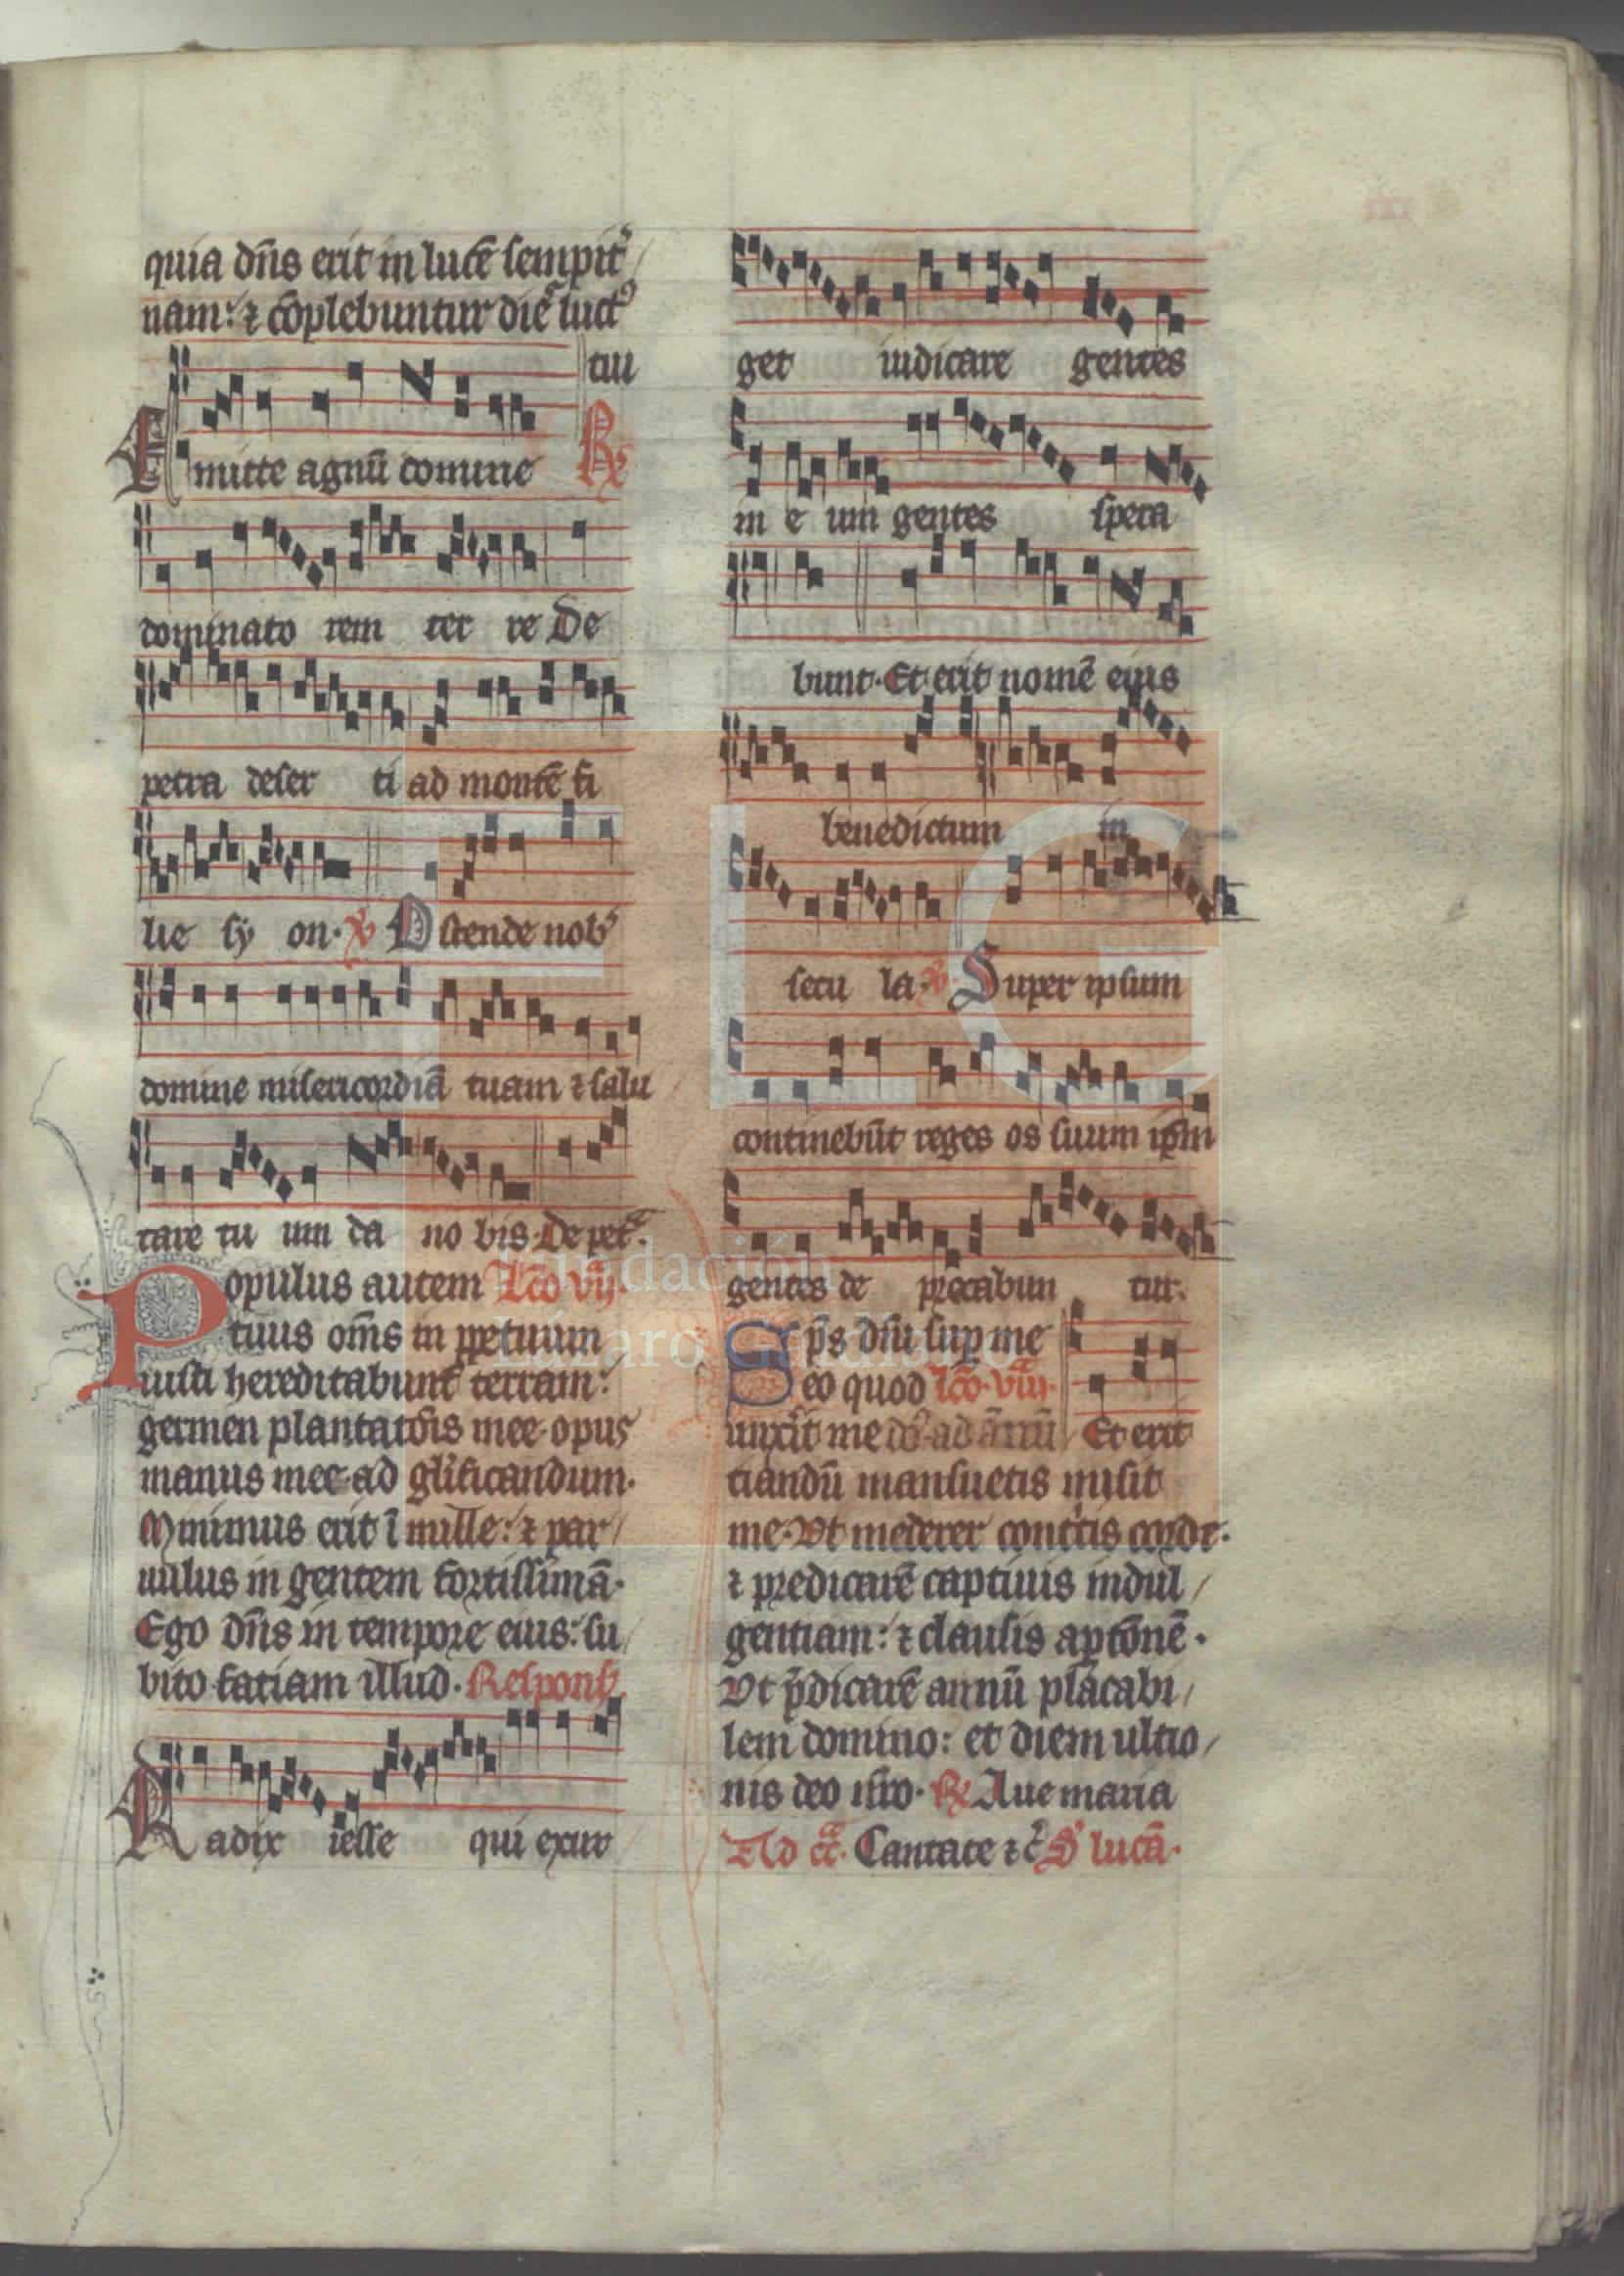 quia dñs erit in lucē sempit̉
nam: ⁊ cōplebuntur die luct᷒
tui
Emitte agnū domine ℟
dominato rem ter re De
petra deser ti ad montē fi
lie sy on. ℣ Ostende nob᷒
domine misericordiā tuam ⁊ salu
tare tu um da no bis. De pet͛.
Populus autem Lco vij.
tuus om̄s in ꝑpetuum
iusti hereditabunt terram:
germen plantatōis mee. opus
manus mee. ad gl̄ificandum.
Minimus erit ī mille: ⁊ par
uulus in gentem fortissimā.
Ego dñs in tempore eius: su
bito faciam illud. Respons
Radix iesse qui exur
get iudicare gentes
in e um gentes spera
bunt. Et erit nomē eius
benedictum in
secu la. ℣. Super ipsum
continebūt reges os suum ip̄m
gentes de precabun tur.
Sp̄s dñi sup me
eo quod lco. viij.
unxit me ad Et erit
tiandū mansuetis misit
me. Vt mederer cont̉tis corde.
⁊ predicarē captiuis indul
gentiam: ⁊ clausis aꝑtōnē.
Vt p̄dicarē annū placabi
lem domino: et diem ultio
nis deo nr̄o. ℟ Aue maria
Ad Cantate ⁊ c̉ lucā.
Fundación
Lázaro Galdiano